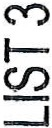 LIST 3